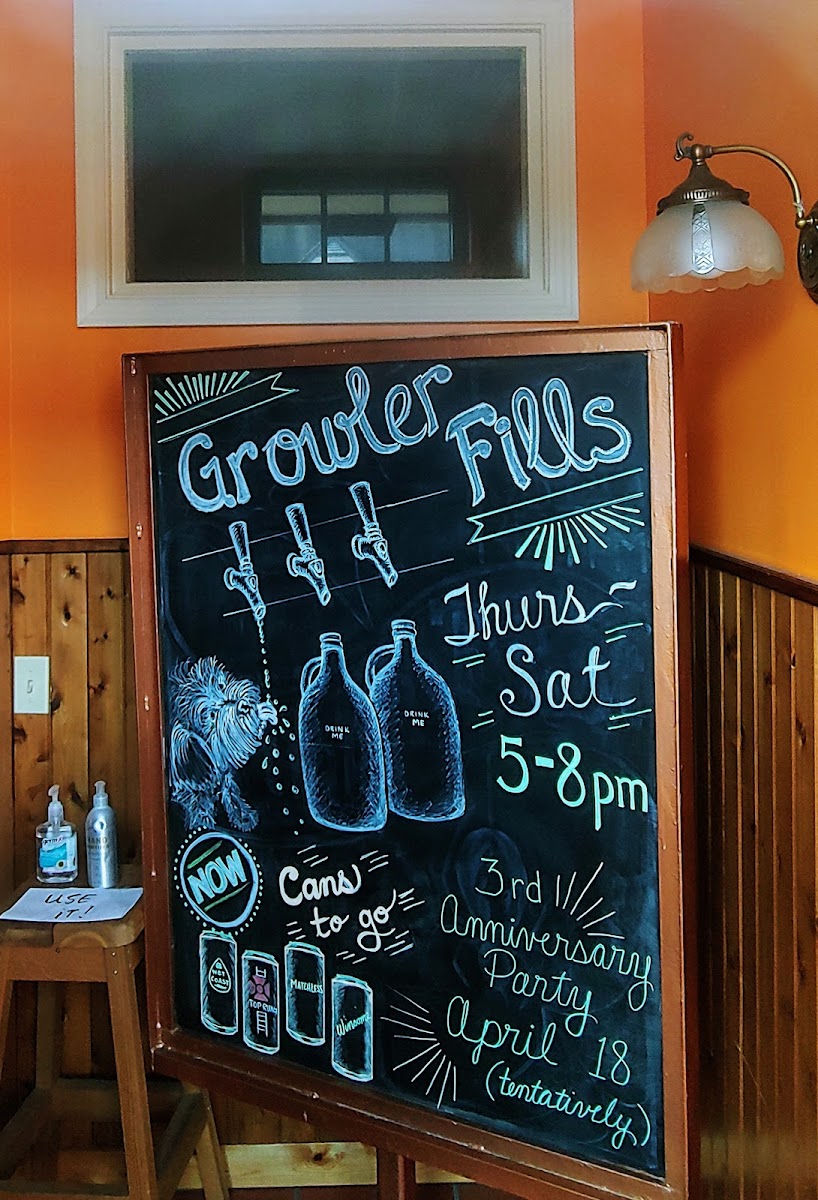 Growler
Fills
Thurs ~
Sat
5-8pm
DRINK
ME
DRINK
ME
NOW
Cans
to go
WET
COAST
TOP RUNG
MATCHLESS
3rd
Anniversary
Party
April 18
(tentatively)
HAND
USE
IT!